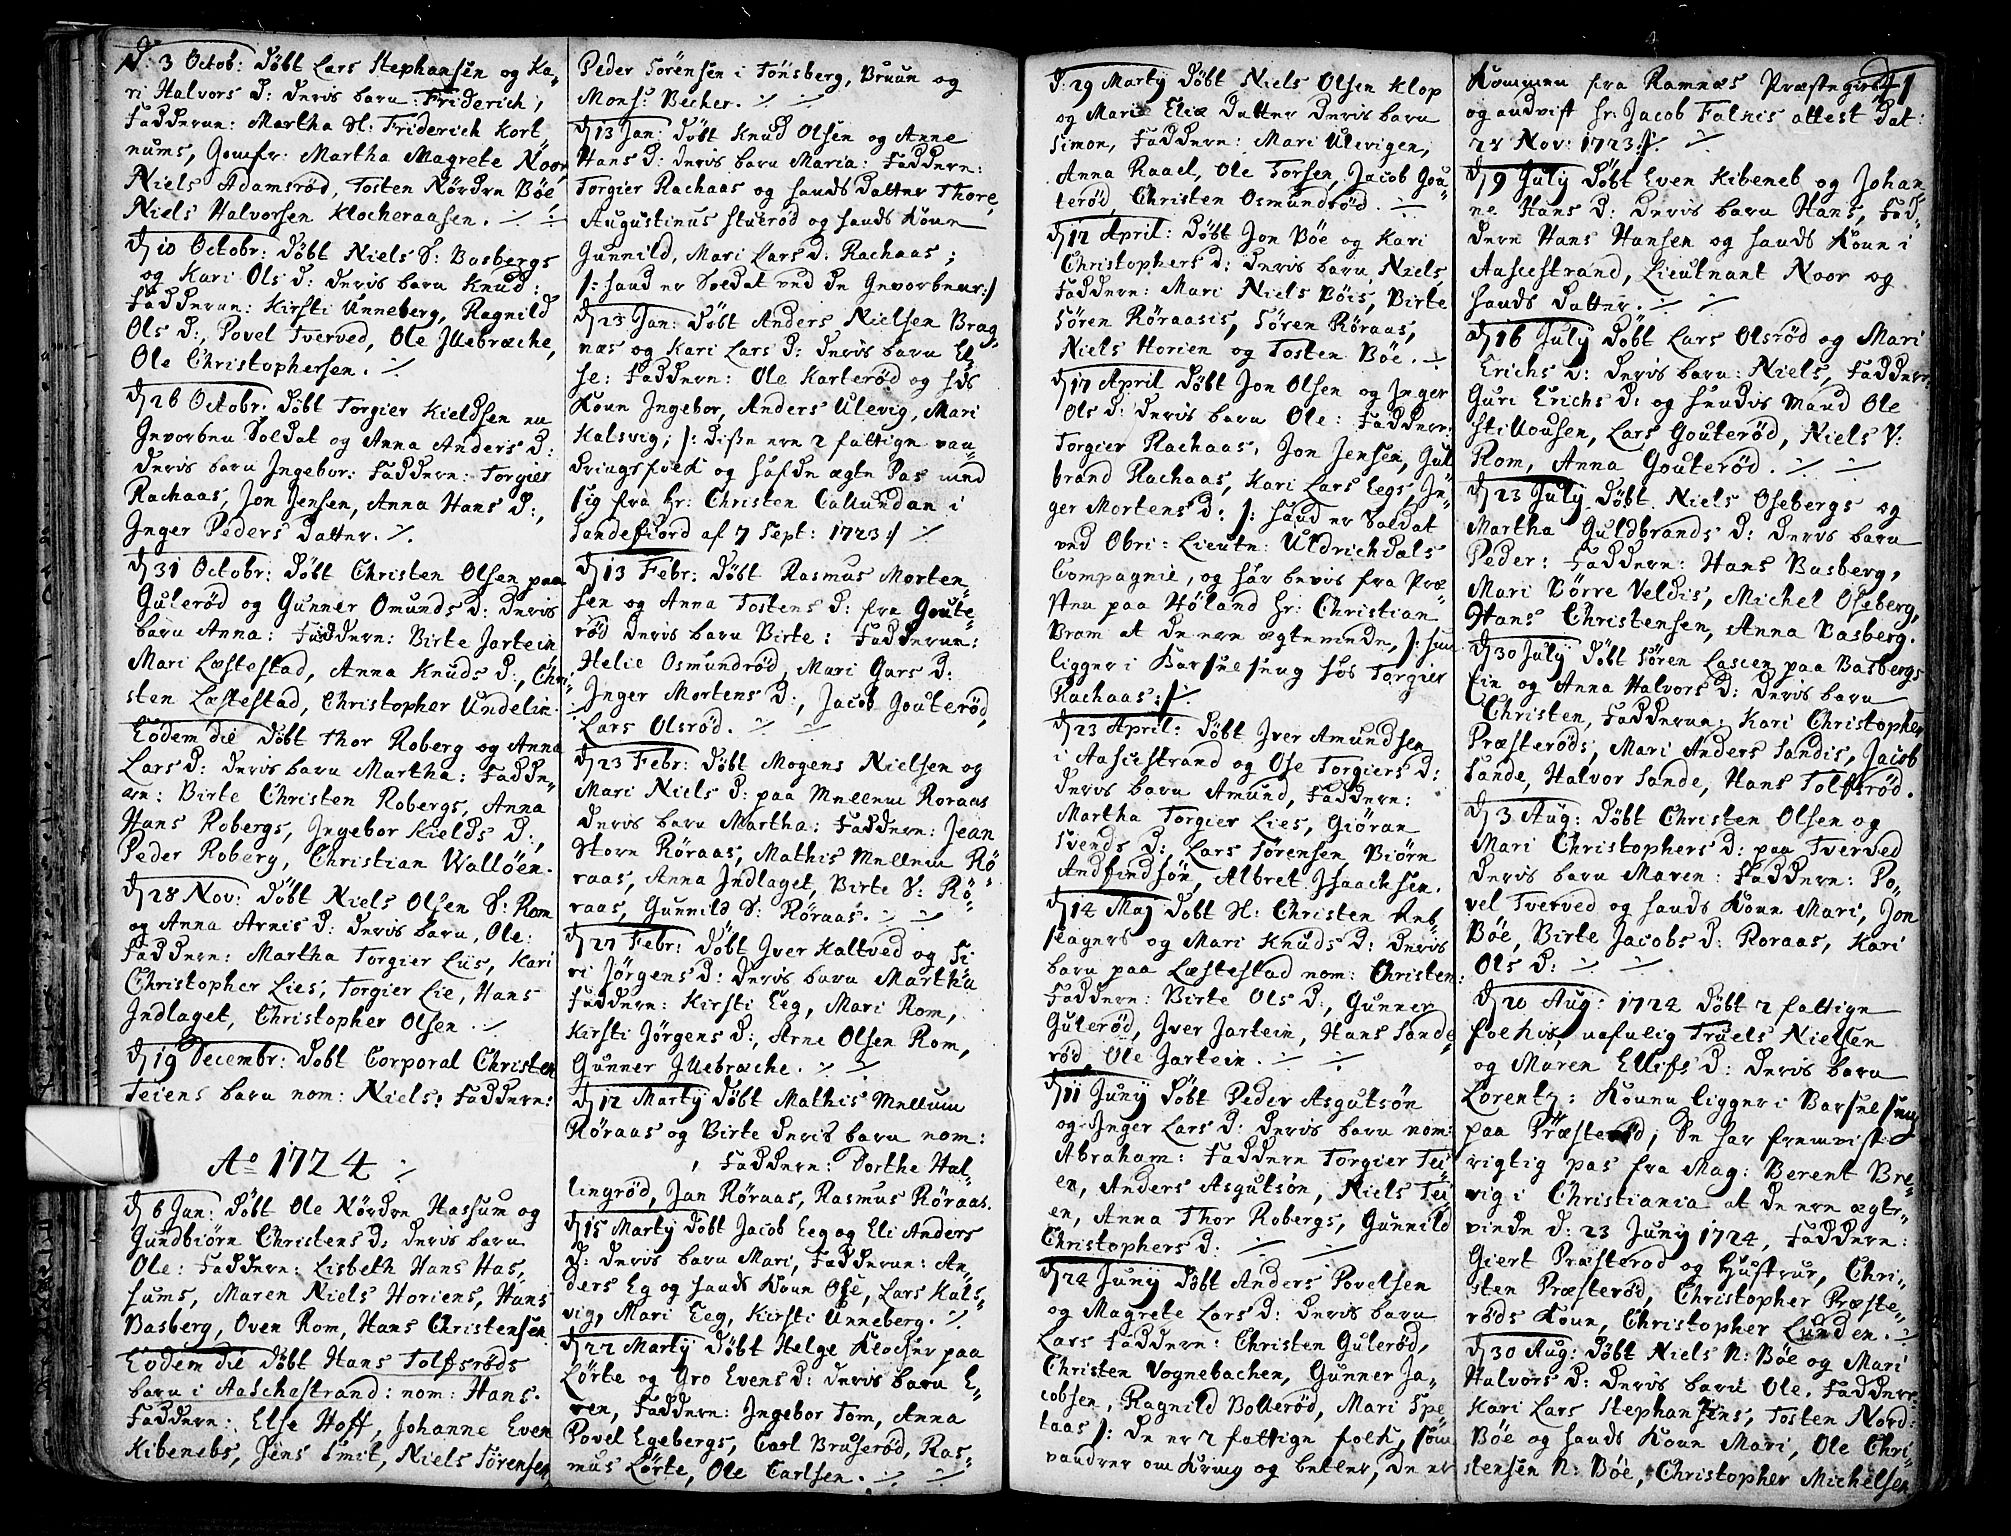 D. 3 Octob: Døbt Lars Stephansen og Ka-
ri Halvors D: deris barn: Friderich,
Fadderne: Martha Sl: Friderich Kort
nums, Jomfr: Martha Magrete Noor
Niels Adamsrød, Tosten Nørdre Bøe
Niels Halvorsen Klocheraasen. ./. ./.
D 10 Octobr: Døbt Niels S: Basbergs
og Kari Ols D: deris barn Knud:
Fadderne: Kirsti Unneberg, Ragnild
Ols D:, Povel Tverved, Ole Illebræche,
Ole Christophersen. ./.
D 26 Octobr: Døbt Torgier Kieldsen en
Gevorben Soldat og Anna Anders D:
deris barn Ingebor: Faddere: Torgier
Rachaas, Jon Jensen, Anna Hans D:,
Inger Peders Datter. ./.
D 31 Octobr: Døbt Christen Olsen paa
Gulerød og Gunner Omunds D: deris
barn Anna: Faddere: Birte Jartein,
Mari Læstestad, Anna Knuds D:, Chri-
sten Læstestad, Christopher Undelin.
Eodem die Døbt Thor Roberg og Anna
Lars D: deris barn Martha: Fadde-
re: Birte Christen Robergs, Anna
Hans Robergs, Ingebor Kields D:,
Peder Roberg, Christian Walløen.
D 28 Nov: Døbt Niels Olsen S: Rom
og Anna Arnis D: deris barn, Ole:
Faddere: Martha Torgier Liis, Kari
Christopher Lies, Torgier Lie, Hans
Indlaget, Christopher Olsen ./.
D 19 Decembr: Døbt Corporal Christen
Teiens barn nom: Niels: Faddere:
Ao 1724 ./.
D 6 Jan: Døbt Ole Nørdre Hassum og
Gundbiørn Christens D: deris barn
Ole: Faddere: Lisbeth Hans Has,
sums, Maren Niels Horiens, Hans
Basberg, Oven Rom, Hans Christensen
Eodem die Døbt Hans Tolfsrøds
barn i Aaschestrand: nom: Hans.
Faddere: Else Hoff, Johanne Even
Kibenebs, Jens Smit, Niels Sørensen
Peder Sørensen i Tønsberg, Bruun og
Mons: Becher. ./. ./.
D 13 Jan: Døbt Knud Olsen og Anne
Hans D: deris barn Maria: Faddere:
Torgier Rachaas og hands datter Thore,
Augustinus Stuerød og hands Kone
Gunnild, Mari Lars D: Rachaas;
/: hand er Soldat ved de Gevorbene:/
D 23 Jan: Døbt Anders Nielsen Brag-
næs og Kari Lars D: deris barn El-
se: Faddere: Ole Karterød og hds
Kone Ingebor, Anders Ulevig, Mari
Kalsvig; /: disse ere 2 fattige van-
dringsfolck og hafde ægte Pas med
sig fra Hr: Christen Callundan i
Sandefiord af 7 Sept: 1723:/ ./.
D 13 Febr: Døbt Rasmus Morten-
sen og Anna Tostens D: fra Goute-
rød deris barn Birte: Fadderne:
Helie Osmundrød, Mari Gars D:
Inger Mortens D:, Jacob Gouterød,
Lars Olsrød. ./. ./.
D 23 Febr: Døbt Mogens Nielsen og
Mari Niels D: paa Mellem Roraas
deris barn Martha: Faddere: Jean
Store Røraas, Mathis Mellem Rø-
raas, Anna Indlaget, Birte S: Rø-
raas, Gunnild S: Røraas. ./. ./.
D 27 Febr: Døbt Iver Kaltved og Si
ri Jørgens D: deris barn Martha
Faddere: Kirsti Eeg, Mari Rom,
Kirsti Jørgens D:, Arne Olsen Rom,
Gunner Illebræche. ./. ./.
D 12 Martÿ Døbt Mathis Mellum
Røraas og Birte deris barn nom:
, Faddere: Dorthe Hal-
lingrød, Jan Røraas, Rasmus Røraas.
D 15 Martÿ Døbt Jacob Eeg og Eli Anders
D: deris barn Mari, Fadderne: An-
ders Eg og hands Kone Ose, Lars Kals-
vig, Mari Eeg, Kirsti Unneberg. ./.
D 22 Martÿ Døbt Helge Klocher paa
Lørte og Gro Evens D: deris barn E-
ven, Faddere: Ingebor Tom, Anna
Povel Egebergs, Carl Bruserød, Ras-
mus Lørte, Ole Carlsen. ./. ./.
D: 29 Martÿ Døbt Niels Olsen Klop
og Marie Eliæ Datter deris barn
Simon, Faddere: Mari Ulevigen,
Anna Raael, Ole Torsen, Jacob Gou-
terød, Christen Osmundrød. ./.
D 12 April: Døbt Jon Bøe og Kari
Christophers D: deris barn Niels,
Faddere: Mari Niels Bøis, Birte
Søren Røraasis, Søren Røraas,
Niels Horien og Tosten Bøe. ./.
D 17 April Døbt Jon Olsen og Inger
Ols D: deris barn Ole: Faddere:
Torgier Rachaas, Jon Jensen, Gul
brand Rachaas, Kari Lars Eegs, In-
ger Mortens D: /: hand er Soldat
ved Obri: Lieutn: Uldrichdals
Compagnie, og har bevis fra Præ-
sten paa Høland Hr: Christian
Bram at de ere ægteviede, /: hun
ligger i Barselseng hos Torgier
Rachaas:/ ./.
D 23 April: Døbt Iver Amundsen
i Aasiestrand og Ose Torgiers D:
deris barn Amund, Faddere:
Martha Torgier Lies, Giøran
Svends D: Lars Sørensen Biørn
Andfindsøn, Albret Isaachsen.
D 14 Maj Døbt Sl: Christen Reb-
slagers og Mari Knuds D: deris
barn paa Læstestad nom: Christen:
Faddere: Birte Ols D:, Gunner
Gulerød, Iver Jartein, Hans Sande
rød, Ole Jartein. ./. ./.
D 11 Junÿ Døbt Peder Asgutsøn
og Inger Lars D: deris barn nom:
Abraham: Faddere Torgier Tei-
en, Anders Asgutsøn, Niels Tei-
en, Anna Thor Robergs, Gunnild
Christophers D: ./. ./.
D 24 Junÿ Døbt Anders Povelsen
og Magrete Lars D: deris barn
Lars Faddere: Christen Gulerød,
Christen Vognebachen, Gunner Ja-
cobsen, Ragnild Bollerød, Mari Spe
laas /: de er 2 fattige folck, som
vandrer om kring og betler, de er
41
Kommen fra Ramnæs Præstegield
og andvist hr: Jacob Falnis attest dat:
28 Nov: 1723:/ ./.
D 9 Julÿ Døbt Even Kibeneb og Johan
ne Hans D: deris barn Hans, Fad-
dere Hans Hansen og hands Kone i
Aaschestrand, Lieutnant Noor og
hands datter. ./. ./.
D 16 Julÿ Døbt Lars Olsrød og Mari
Erichs D: deris barn: Niels, Faddere
Guri Erichs D: og hendis Mand Ole
Stillousen, Lars Gouterød, Niels V:
Rom, Anna Gouterød. ./. ./.
D 23 Julÿ Døbt Niels Osebergs og
Martha Guldbrands D: deris barn
Peder: Faddere: Hans Basberg,
Mari Børre Veldis, Michel Oseberg,
Hans Christensen, Anna Basberg.
D 30 Julÿ Døbt Søren Lassen paa Basbergs
Eie og Anna Halvors D: deris barn
Christen, Fadderne: Kari Christopher
Præsterøds, Mari Anders Sandis, Jacob
Sande, Halvor Sande, Hans Tolfsrød.
D 3 Aug: Døbt Christen Olsen og
Mari Christophers D: paa Tverved
deris barn Maren: Faddere: Po-
vel Tverved og hands Kone Mari, Jon
Bøe, Birte Jacobs D: Roraas, Kari
Ols D: ./. ./.
D 20 Aug: 1724 Døbt 2 fattige
folkis, nafnlig Truels Nielsen
og Maren Ellifs D: deris barn
Lorentz: Konen ligger i Barselseng
paa Præsterød, De har fremvist
rigtig pas fra Mag: Berent Bre-
vig i Christiania at de ere ægte-
viede d: 23 Junÿ 1724, Faddere:
Giert Præsterød og Hustrue, Chri-
sten Præsterød, Christopher Præste-
røds Kone, Christopher Lunden. ./.
D 30 Aug: Døbt Niels N: Bøe og Mari
Halvors D: deris barn Ole. Faddere:
Kari Lars Stephansens, Tosten Nord:
Bøe og hands Kone Mari, Ole Chri-
stensen N: Bøe, Christopher Michelsen